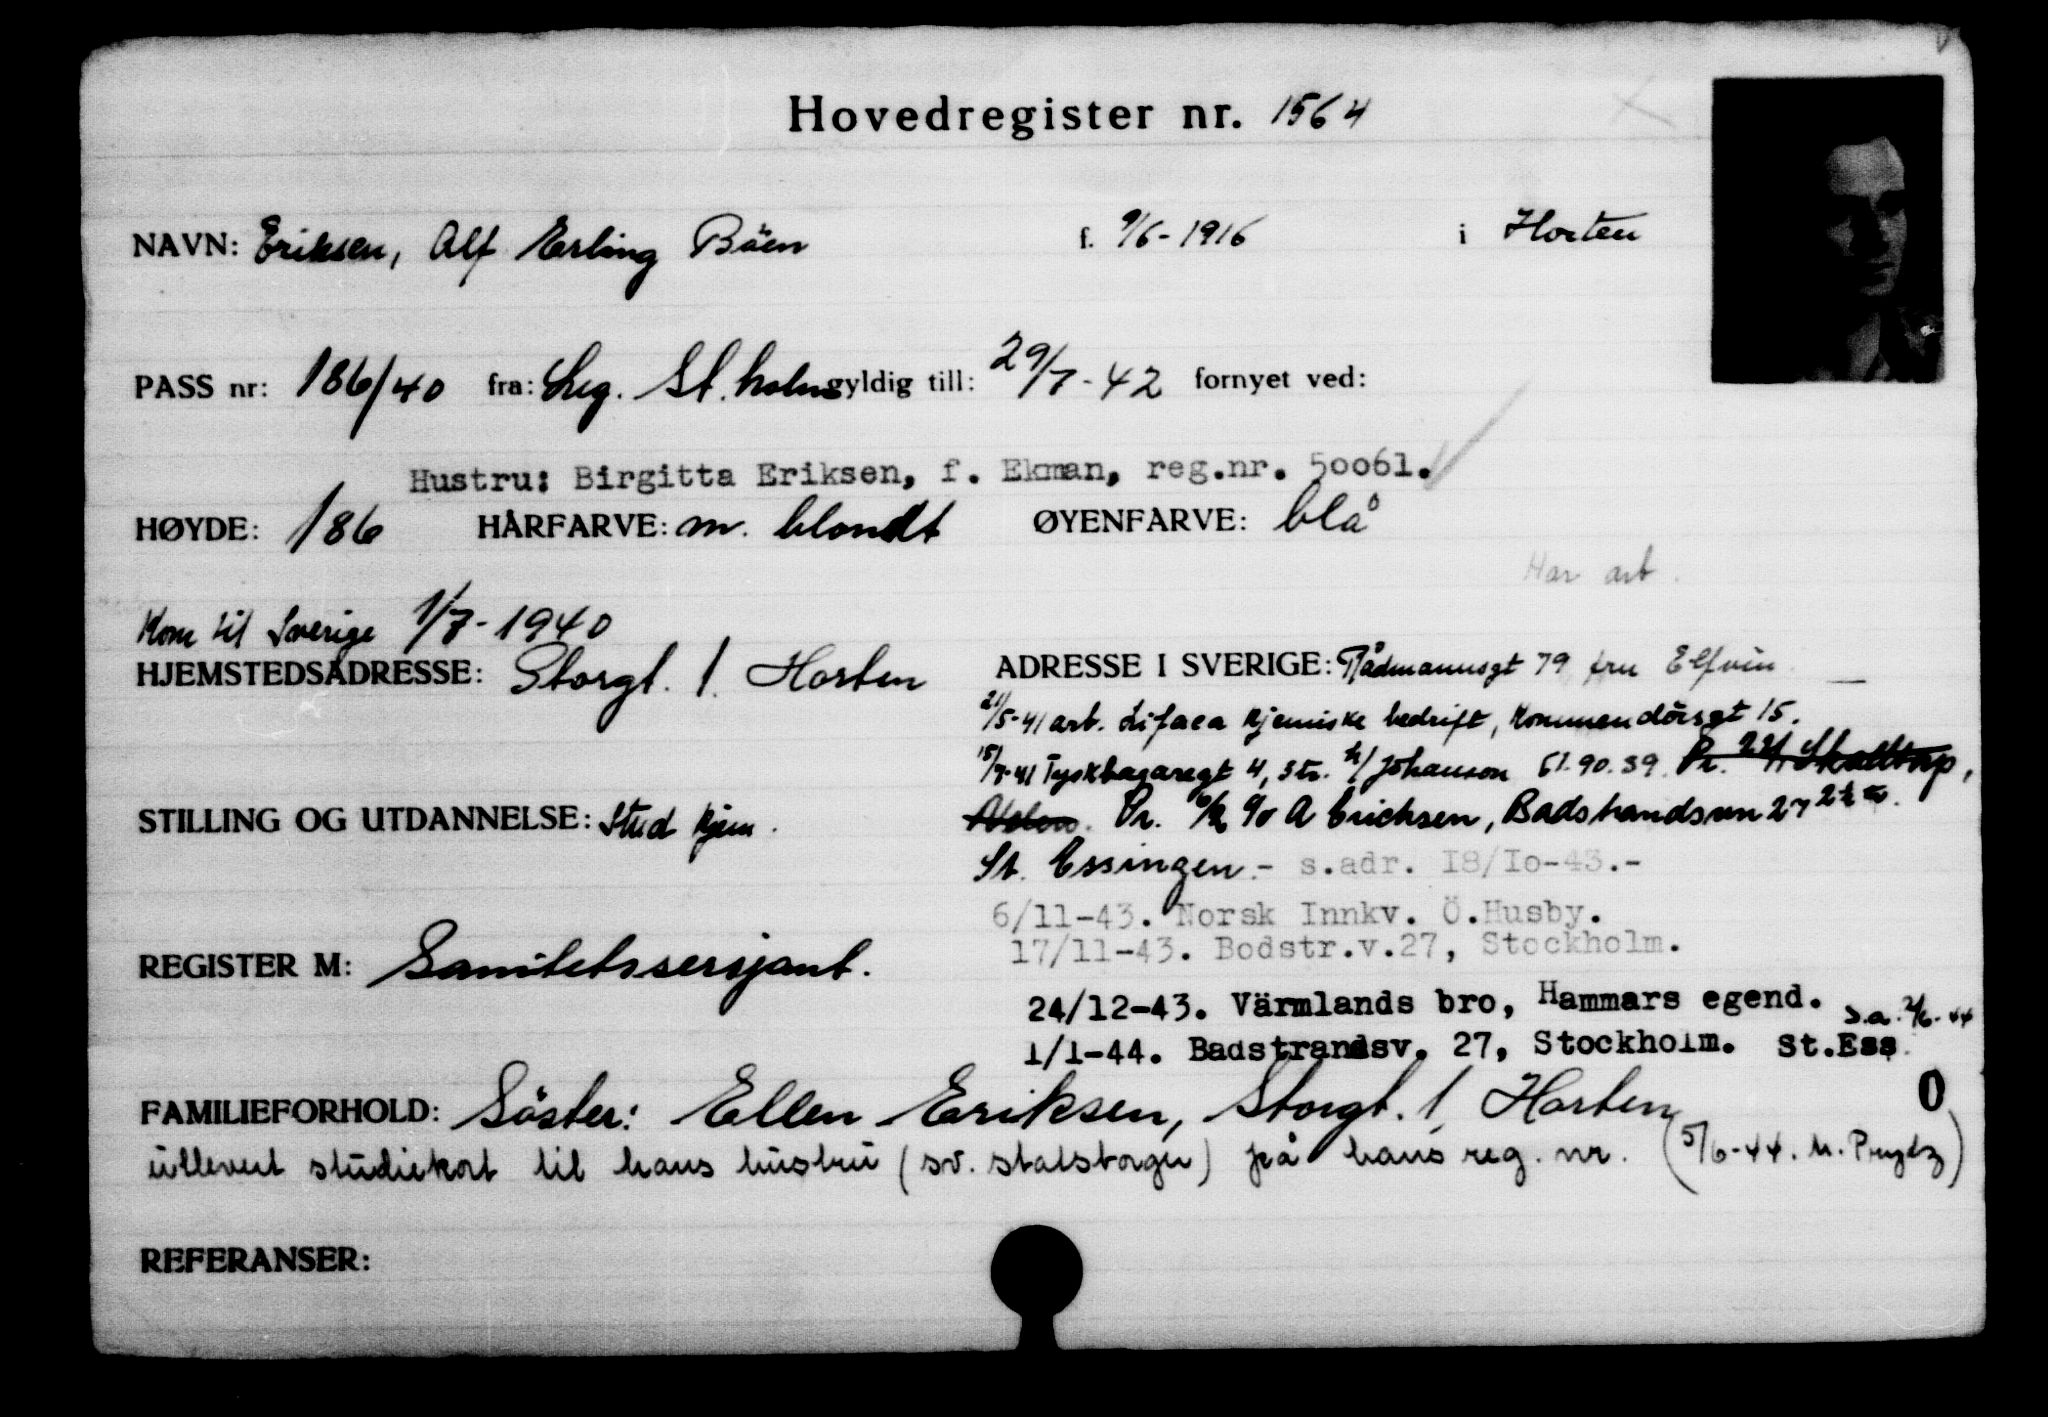 Hovedregister nr. 1564
NAVN: Eriksen, Alf Erling Böen f. 9/6-1916 i Horten
PASS nr: 186/40 fra: Leg. St.holm gyldig till: 29/7-42 fornyet ved:
Hustru: Birgitta Eriksen, f. Ekman, reg.nr. 50061.
HØYDE: 186 HÅRFARVE: m. blondt ØYENFARVE: blå
Har arb.
Kom til Sverige 1/7-1940
HJEMSTEDSADRESSE: Storgt. 1. Horten
ADRESSE I SVERIGE: Rådmannsgt 79 fru Elfvin
21/5-41 arb. Lifaca kjemiske bedrift, Kommendörsgt 15.
15/7-41 Tyskbagaregt 4, 3tr. h/ Johanson 61.90.39. Pr.
STILLING OG UTDANNELSE: Stud kjem.
Pr. c/o A Erichsen, Badstrandsven 27
St. Essingen.- s.adr. 18/10-43.-
6/11-43. Norsk Innkv. Ö.Husby.
17/11-43. Bodstr.v.27, Stockholm.
REGISTER M: Sanitetssersjant.
24/12-43. Värmlands bro, Hammars egend. s.a. 2/6-44
1/1-44. Badstrandsv. 27, Stockholm. St.Ess.
0
FAMILIEFORHOLD: Söster: Ellen Eriksen, Storgt. 1, Horten
utlevert studiekort til hans hustru (sv. statsborger) på hans reg. nr. (5/6-44. M. Prydz)
REFERANSER: